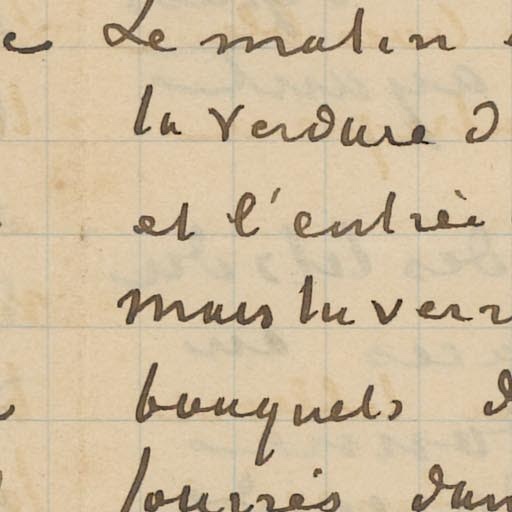 Le matin
la verdure d
et l'entrée
mais tu verr
bouquets d
fourrés dan